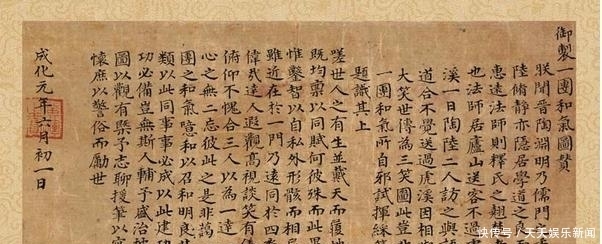 御製一團和氣圖贊
朕聞晉陶淵明乃儒門
陸脩靜亦隱居學道之
惠遠法師則釋氏之翹
也法師居廬山送客不過
溪一日陶陸二人訪之與
道合不覺送過虎溪因相
大笑世傳為三笑圖此豈
一團和氣所自邪試揮綵
題識其上
嗟世人之有生並戴天而履
既均稟以同賦何彼殊而此
惟鑿智以自私外形骸而相
雖近在於一門乃遠同於四
偉哉達人遐觀高視談笑有
俯仰不愧合三人以為一達
心之無二忘彼此之是非藹
團之和氣噫和以召和明良
類以此同事事必成以此建
功必備豈無斯人輔予盛治
圖以觀有槩予志聊援筆以
懷庶以警俗而勵世
成化元年六月初一日
快传号·天天娱乐新闻